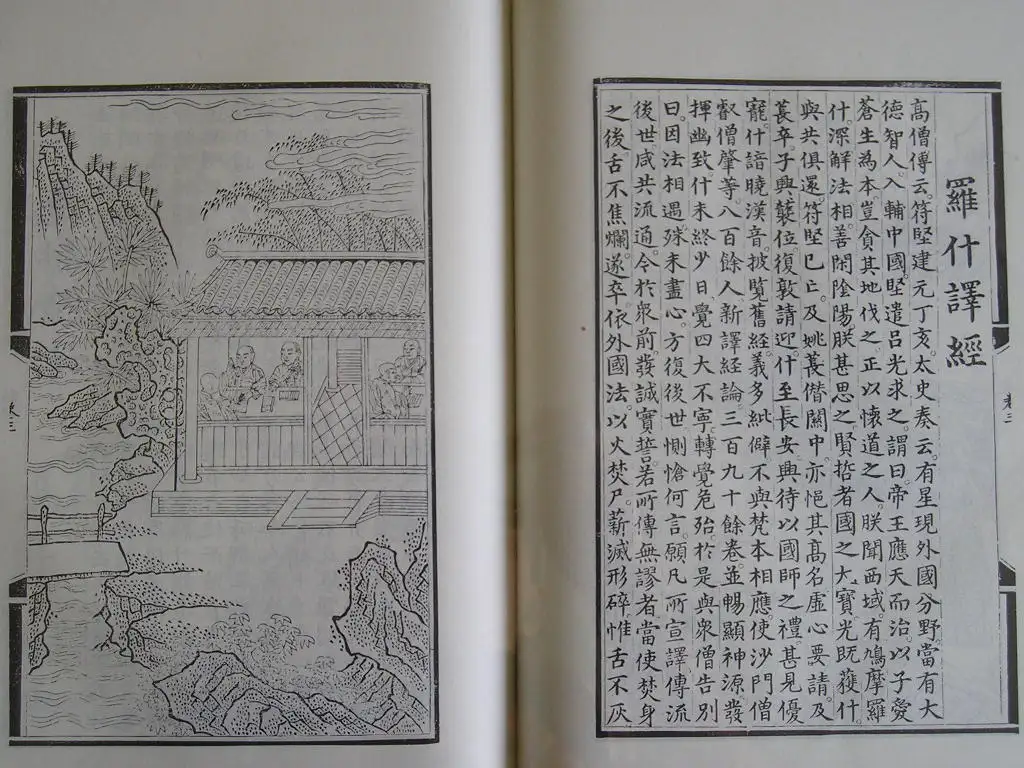 羅什譯經
高僧傳云。符堅建元丁亥。太史奏云。有星現外國分野。當有大
德智人。入輔中國。堅遣呂光求之。謂曰。帝王應天而治。以子愛
蒼生為本。豈貪其地伐之。正以懷道之人。朕聞西域有鳩摩羅
什。深解法相。善閑陰陽。朕甚思之。賢哲者國之大寶。光既獲什。
與共俱還。符堅已亡。及姚萇僣關中。亦挹其高名。虛心要請。及
萇卒。子興襲位。復敦請迎什至長安。興待以國師之禮。甚見優
寵。什諳曉漢音。披覽舊經。義多紕僻。不與梵本相應。使沙門僧
叡僧肇等。八百餘人。新譯經論三百九十餘卷。並暢顯神源。發
揮幽致。什未終少日。覺四大不寧。轉覺危殆。於是與衆僧告別
曰。因法相遇。殊未盡心。方復後世。惻愴何言。願凡所宣譯。傳流
後世。咸共流通。今於衆前發誠實誓。若所傳無謬者。當使焚身
之後。舌不焦爛。遂卒。依外國法。以火焚尸。薪滅形碎。惟舌不灰
卷三